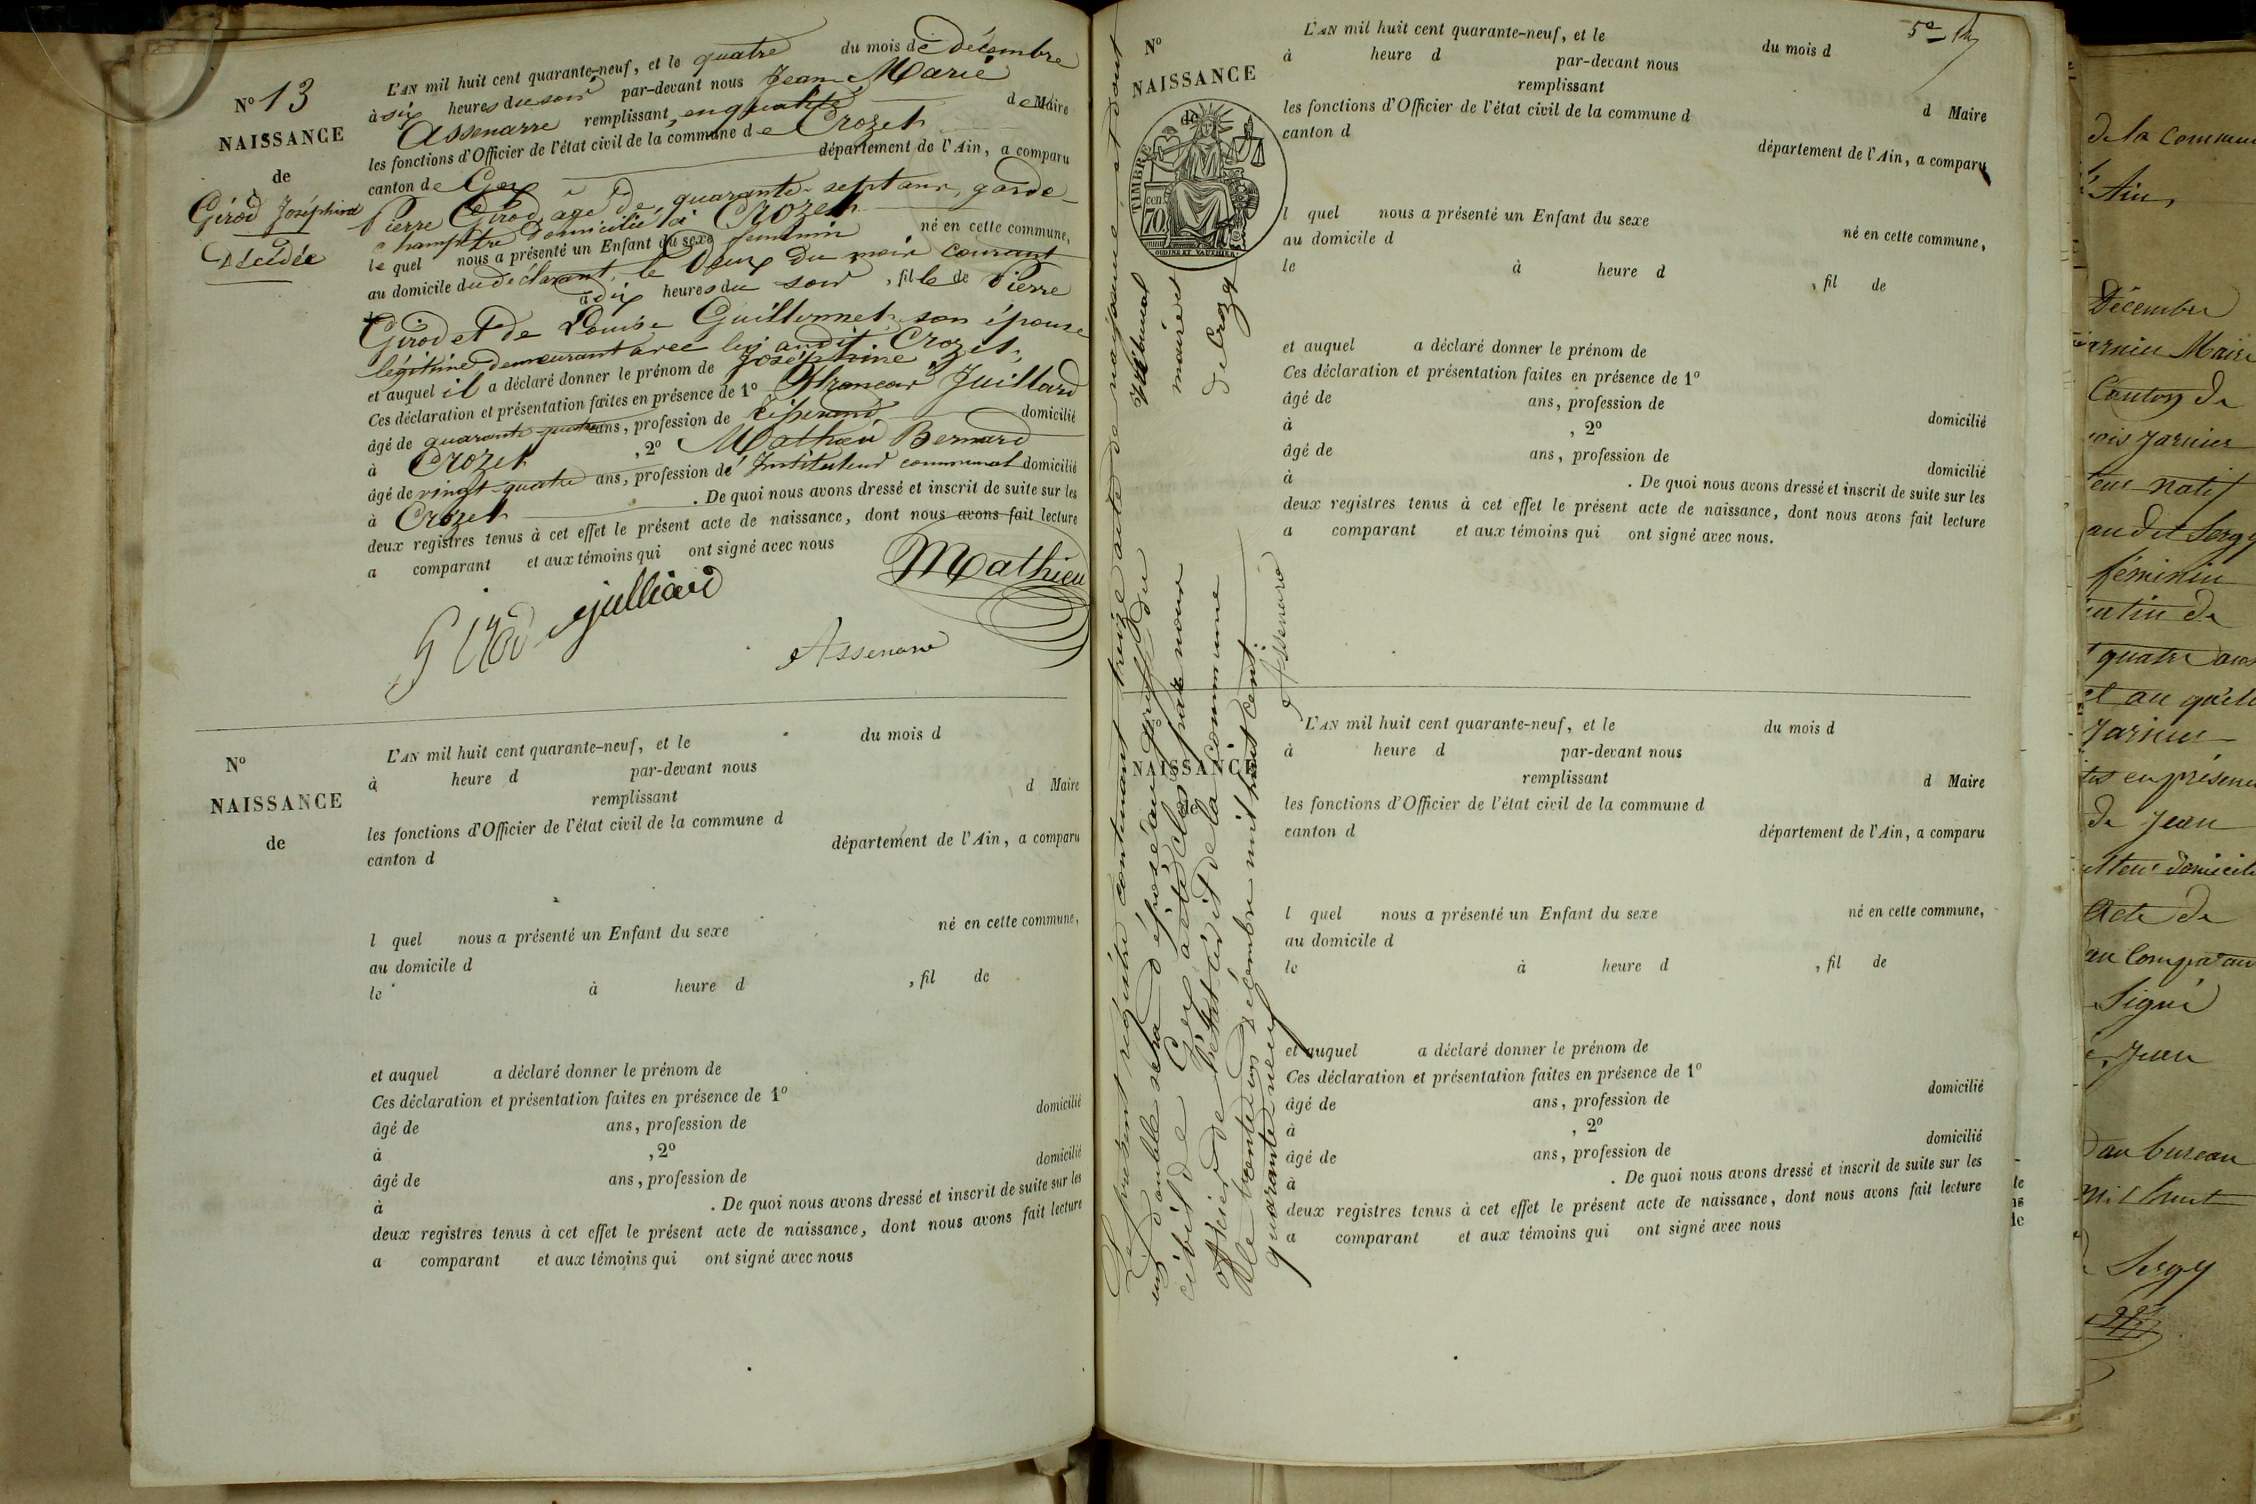 N° 13
NAISSANCE
de
Girod Joséphine
décédée
L'AN mil huit cent quarante-neuf, et le quatre du mois de décembre
à six heures du soir par-devant nous Jean Marie
Assenarre remplissant en qualité de Maire
les fonctions d'Officier de l'état civil de la commune de Crozet
canton de Gex département de l'Ain, a comparu
Pierre Girod, agé de quarante-sept ans, garde
champêtre domicilié à Crozet
lequel nous a présenté un Enfant du sexe féminin né en cette commune,
au domicile du déclarant, le deux du mois courant
à dix heures du soir, fille de Pierre
Girod et de Louise Guillermet son épouse
légitime demeurant avec lui audit Crozet,
et auquel il a déclaré donner le prénom de Joséphine
Ces déclaration et présentation faites en présence de 1° François Juillard
âgé de quarante-quatre ans, profession de tisserand domicilié
à Crozet, 2° Mathieu Bernard
âgé de vingt-quatre ans, profession de Instituteur communal domicilié
à Crozet. De quoi nous avons dressé et inscrit de suite sur les
deux registres tenus à cet effet le présent acte de naissance, dont nous avons fait lecture
a comparant et aux témoins qui ont signé avec nous
Girod Julliard Mathieu
Assenare
N°
NAISSANCE
de
L'AN mil huit cent quarante-neuf, et le du mois d
à heure d par-devant nous
remplissant d Maire
les fonctions d'Officier de l'état civil de la commune d
canton d département de l'Ain, a comparu
l quel nous a présenté un Enfant du sexe né en cette commune,
au domicile d
le à heure d , fil de
et auquel a déclaré donner le prénom de
Ces déclaration et présentation faites en présence de 1°
âgé de ans, profession de domicilié
à , 2°
âgé de ans, profession de domicilié
à . De quoi nous avons dressé et inscrit de suite sur les
deux registres tenus à cet effet le présent acte de naissance, dont nous avons fait lecture
a comparant et aux témoins qui ont signé avec nous
N°
NAISSANCE
de
TIMBRE
70
OUDINÉ ET VAUTHIER
L'AN mil huit cent quarante-neuf, et le du mois d
à heure d par-devant nous
remplissant
les fonctions d'Officier de l'état civil de la commune d d Maire
canton d département de l'Ain, a comparu
l quel nous a présenté un Enfant du sexe
au domicile d né en cette commune,
le à heure d , fil de
et auquel a déclaré donner le prénom de
Ces déclaration et présentation faites en présence de 1°
âgé de ans, profession de
à , 2° domicilié
âgé de ans, profession de
à domicilié
. De quoi nous avons dressé et inscrit de suite sur les
deux registres tenus à cet effet le présent acte de naissance, dont nous avons fait lecture
a comparant et aux témoins qui ont signé avec nous.
Le présent registre contenant treize actes de naissance et dont
un double sera déposé au greffe du tribunal
civil de Gex a été clos par nous maire et
officier de l'état civil de la commune de Crozet
le trente un décembre mil huit cent
quarante neuf
Assenare
NAISSANCE
L'AN mil huit cent quarante-neuf, et le du mois d
à heure d par-devant nous
remplissant d Maire
les fonctions d'Officier de l'état civil de la commune d
canton d département de l'Ain, a comparu
l quel nous a présenté un Enfant du sexe né en cette commune,
au domicile d
le à heure d , fil de
et auquel a déclaré donner le prénom de
Ces déclaration et présentation faites en présence de 1°
âgé de ans, profession de domicilié
à , 2°
âgé de ans, profession de domicilié
à . De quoi nous avons dressé et inscrit de suite sur les
deux registres tenus à cet effet le présent acte de naissance, dont nous avons fait lecture
a comparant et aux témoins qui ont signé avec nous
de la commun
Ain,
Décembre
Maire
Canton de
natif
au dit Sergy
féminin
quatre ans
en présence
de Jean
Acte de
Signé
Jean
au bureau
mil huit
Sergy